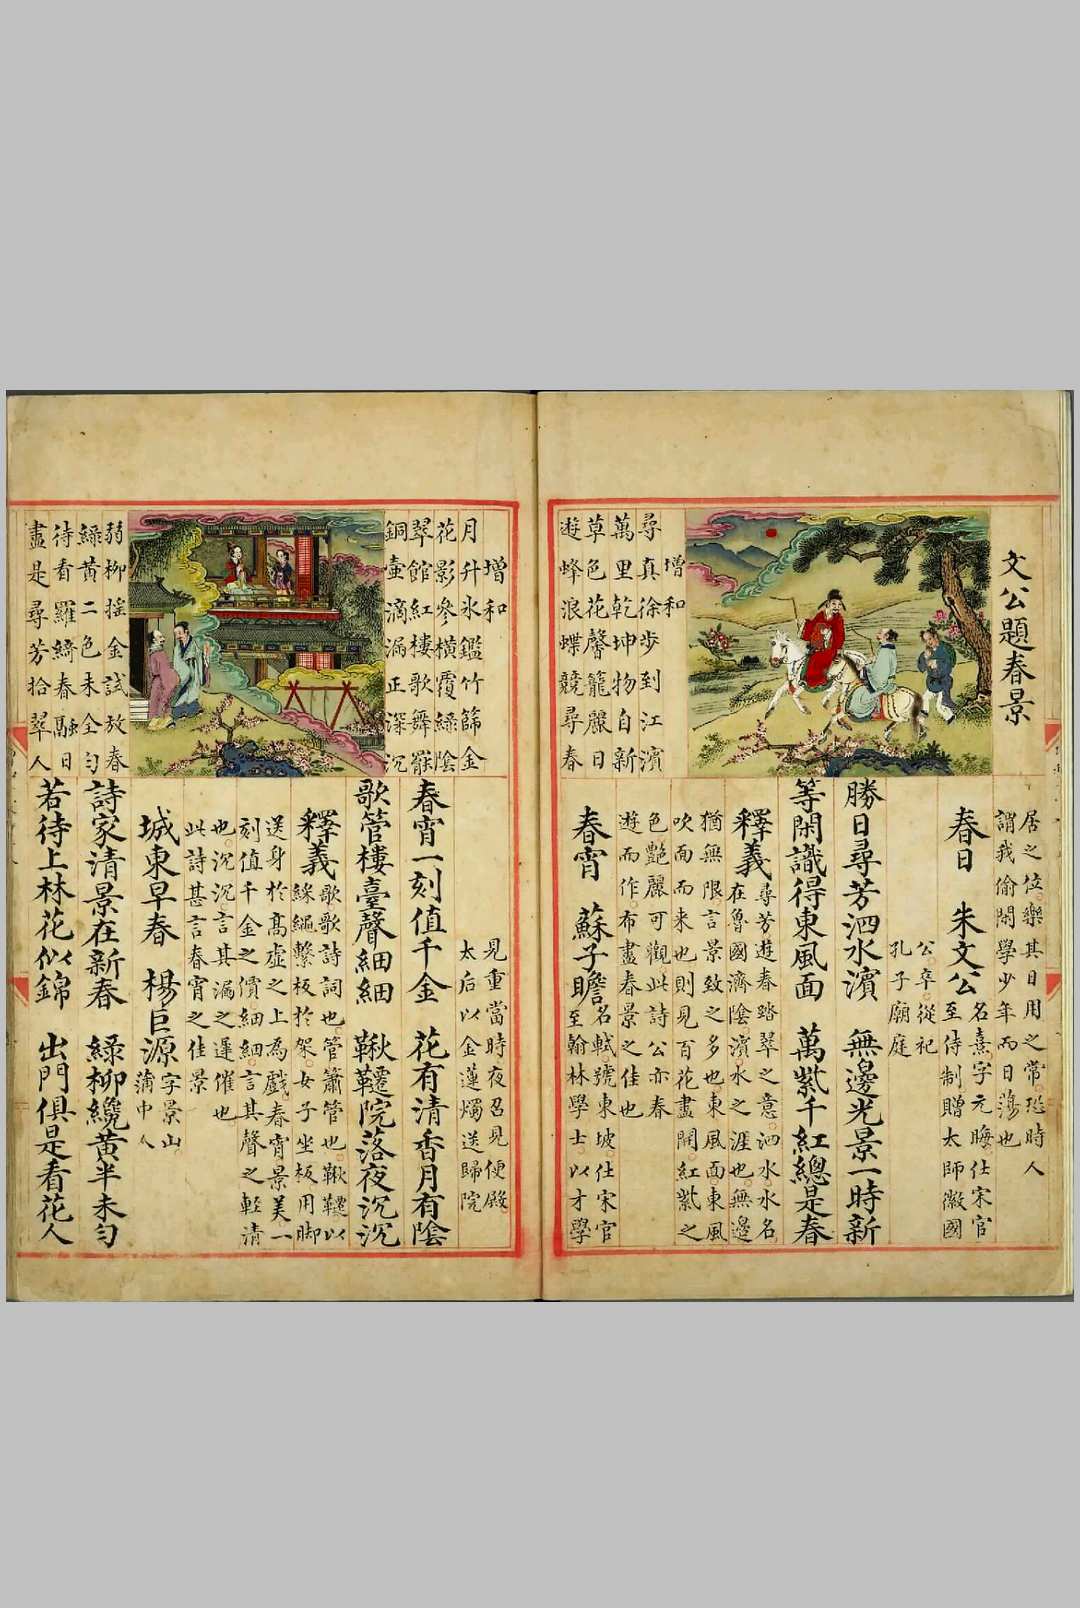 文公題春景
增和
尋真徐步到江濱
萬里乾坤物自新
草色花馨籠麗日
遊蜂浪蝶競尋春
居之位樂其日用之常恐時人
謂我偷閒學少年而日蕩也
春日 朱文公
名熹字元晦仕宋官
至侍制贈太師徽國
公卒從祀
孔子廟庭
勝日尋芳泗水濱 無邊光景一時新
等閑識得東風面 萬紫千紅總是春
釋義
尋芳遊春踏翠之意泗水水名
在魯國濟陰濱水之涯也無邊
猶無限言景致之多也東風面東風
吹面而来也則見百花盡開紅紫之
色艷麗可觀此詩公亦春
遊而作布畫春景之佳也
春宵 蘇子瞻
名軾號東坡仕宋官
至翰林學士以才學
增和
月升氷鑑竹篩金
花影參橫覆綠陰
翠館紅樓歌舞罷
銅壺滴漏正深沉
見重當時夜召見便殿
太后以金蓮燭送歸院
春宵一刻值千金 花有清香月有陰
歌管樓臺聲細細 鞦韆院落夜沉沉
釋義
歌歌詩詞也管簫管也鞦韆以
綵繩繫板於架女子坐板用脚
送身於髙虛之上為戲春宵景美一
刻值千金之價細細言其聲之輕清
也沉沉言其漏之遲催也
此詩甚言春宵之佳景
弱柳搖金試放春
綠黄二色未全勻
待看羅綺春融日
盡是尋芳拾翠人
城東早春 楊巨源
字景山
蒲中人
詩家清景在新春 緑柳纔黄半未勻
若待上林花似錦 出門俱是看花人